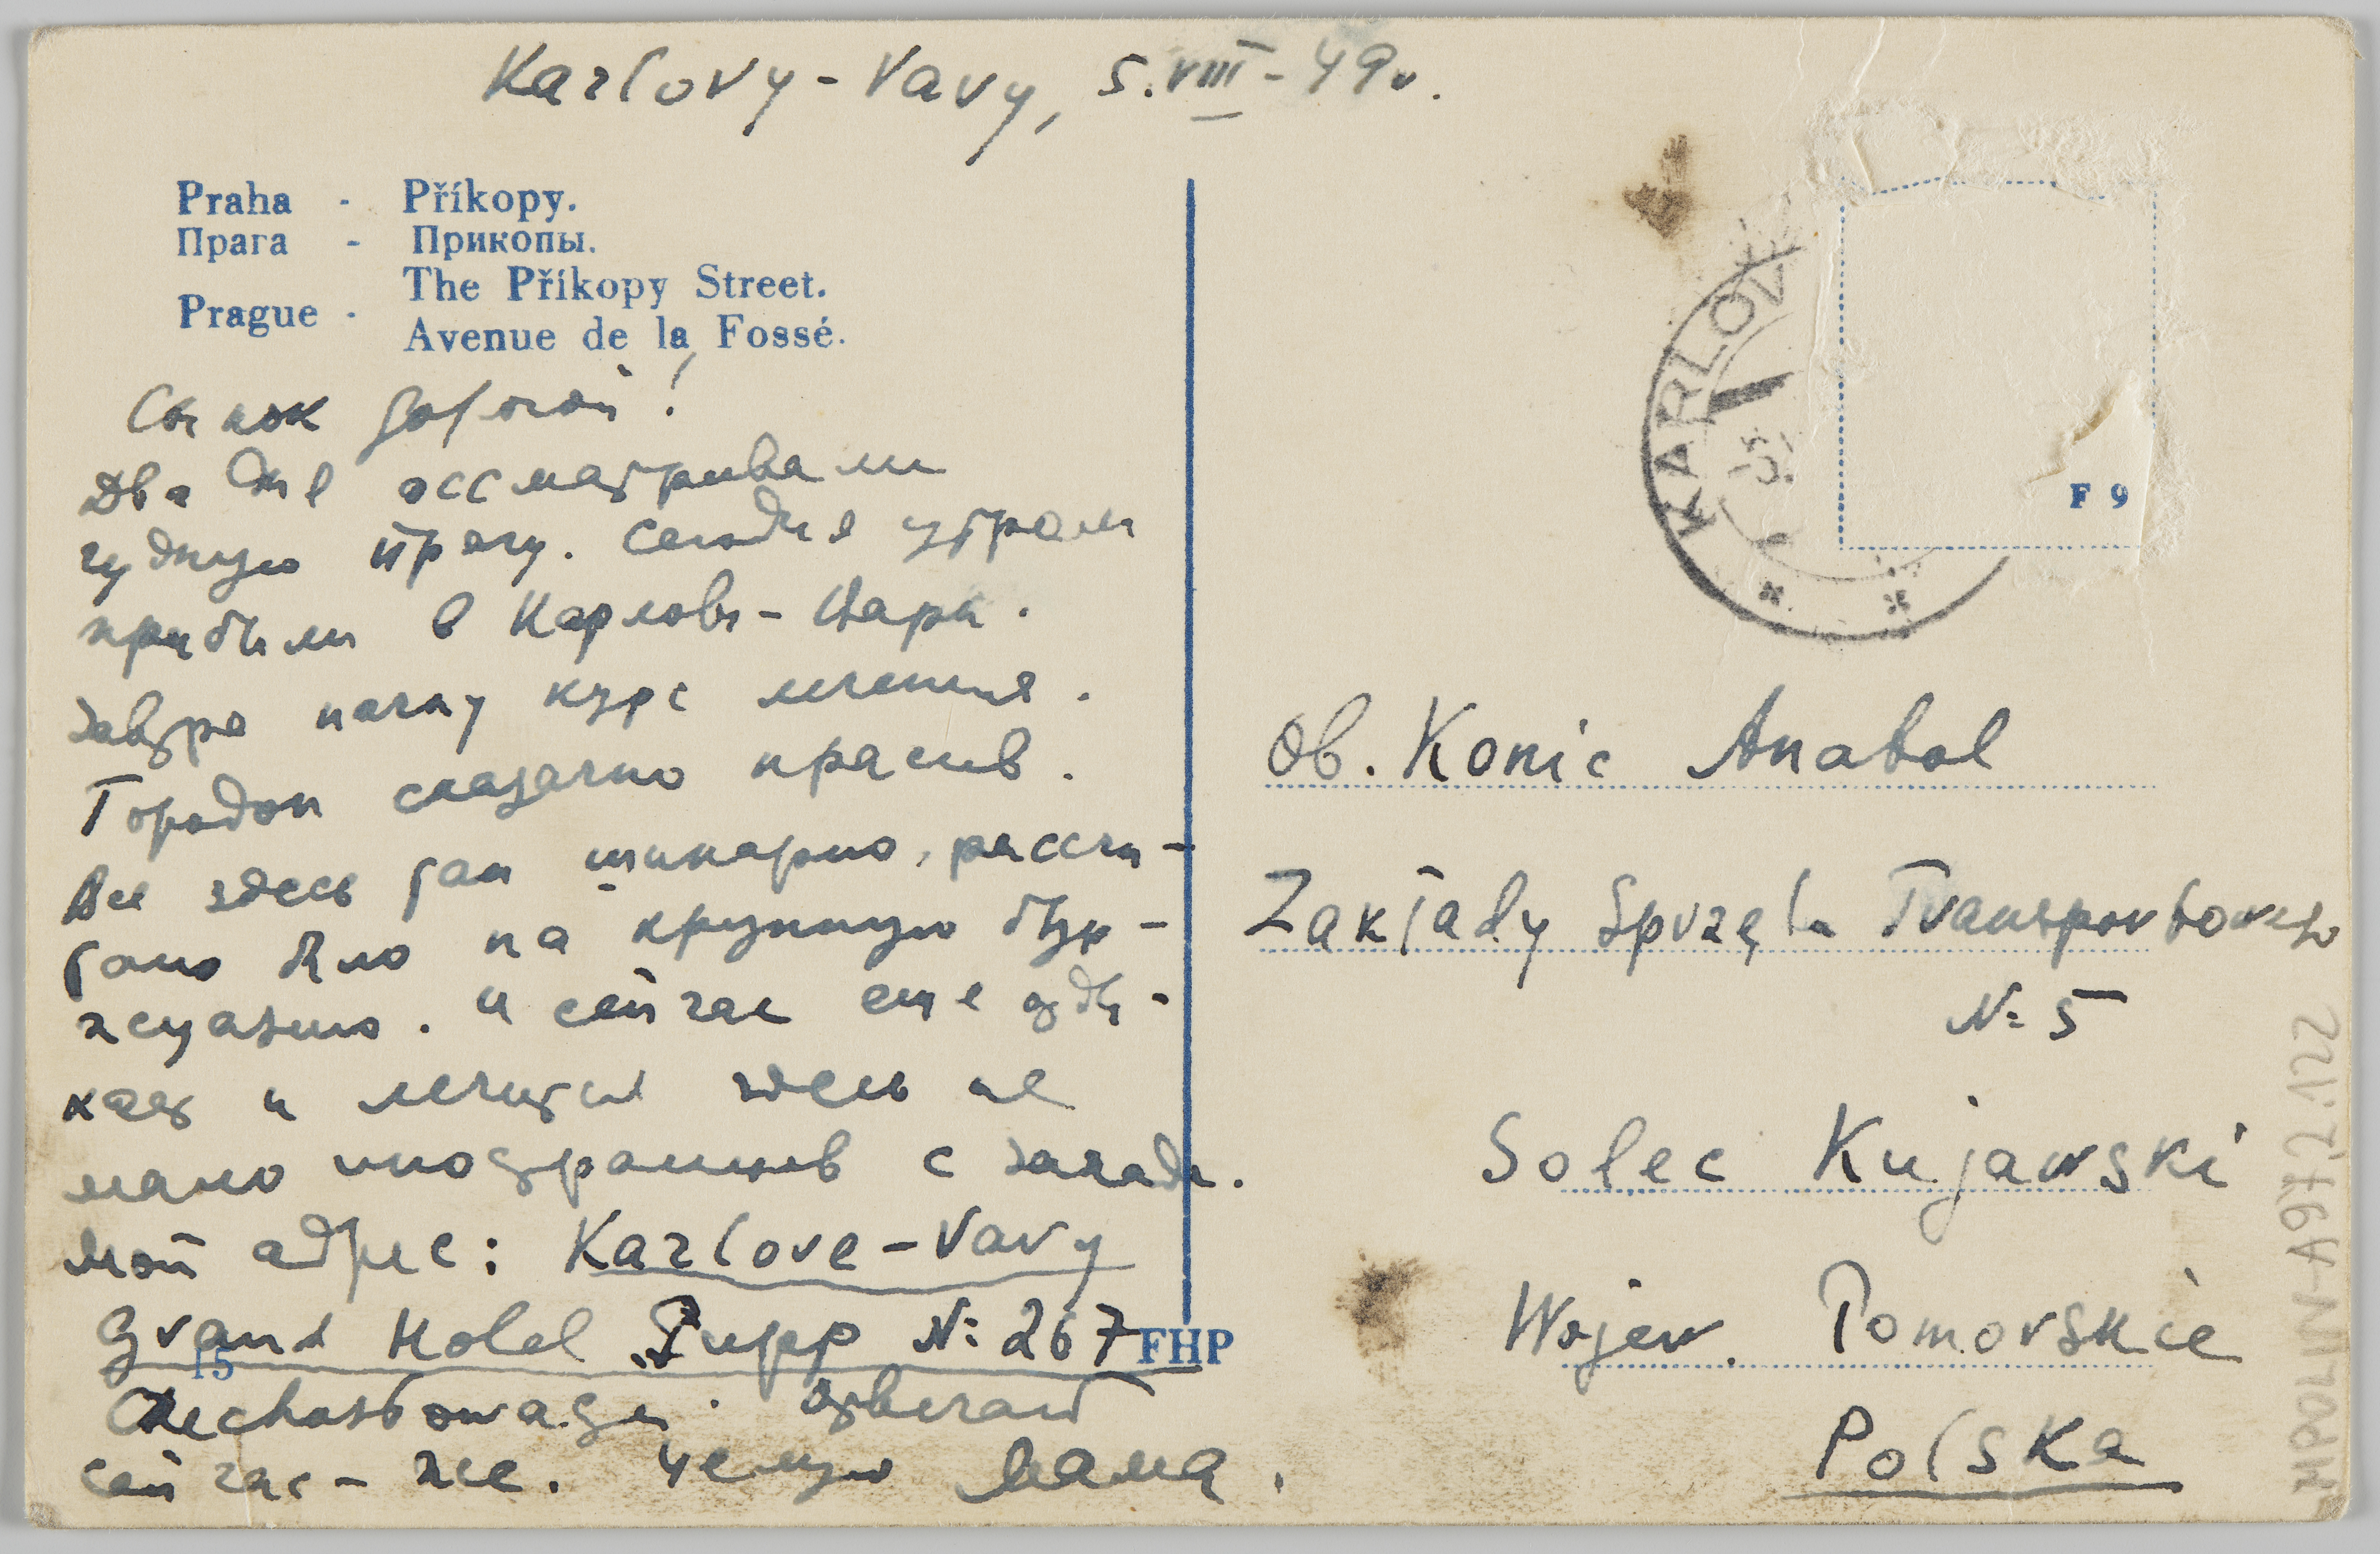 Karlovy-Vary, 5.VIII-49r.
Praha - Příkopy.
Прага - Прикопы.
Prague - The Příkopy Street.
Avenue de la Fossé.
Сынок дорогой!
Два дня осматривали
чудную Прагу. Сегодня утром
прибыли в Карловы-Вары.
Завтра начну курс лечения.
Городок сказачно красив.
Все здесь так шикарно, рассчи-
тано было на крупную бур-
жуазию. И сейчас еще отды-
хает и лечится здесь не
мало иностранцев с запада.
Мой адрес: Karlove-Vary
Grand Hotel „Pupp №267
15
FHP
отвечай
сейчас-же. Целую Мама.
KARLOVY
F 9
Ob. Konic Anatol
Zakłady Sprzętu Transportowego
№ 5
Solec Kujawski
Wojew. Pomorskie
Polska
MPOLIN-A972.1.22